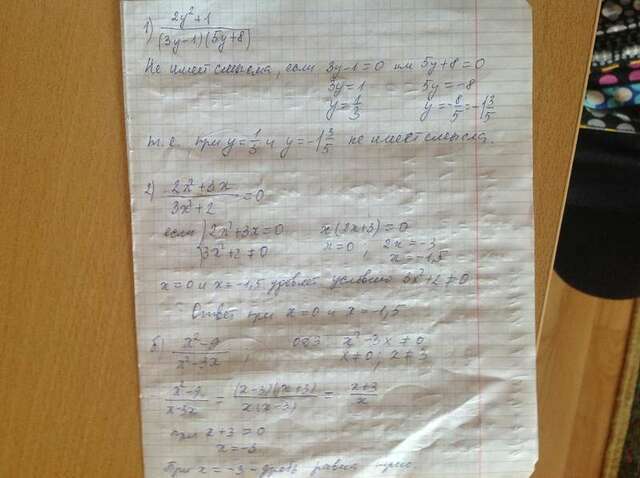 1) (2y²+1)/((3y-1)(5y+8))
не имеет смысла, если 3y-1=0 или 5y+8=0
3y=1 5y=-8
y=1/3 y=-8/5=-1 3/5
т.е. при y=1/3 и y=-1 3/5 не имеет смысла.
2) (2x²+3x)/(3x²+2)=0
если {2x²+3x=0 x(2x+3)=0
3x²+2≠0 x=0, 2x=-3
x=-1,5
x=0 и x=-1,5 удовлет. условию 3x²+2≠0
Ответ при x=0 и x=-1,5
(x²-9)/(x²-3x), ОДЗ x²-3x≠0
x≠0, x≠3
(x²-9)/(x²-3x) = ((x-3)(x+3))/(x(x-3)) = (x+3)/x
при x+3=0
x=-3
При x=-3 дробь равна нулю